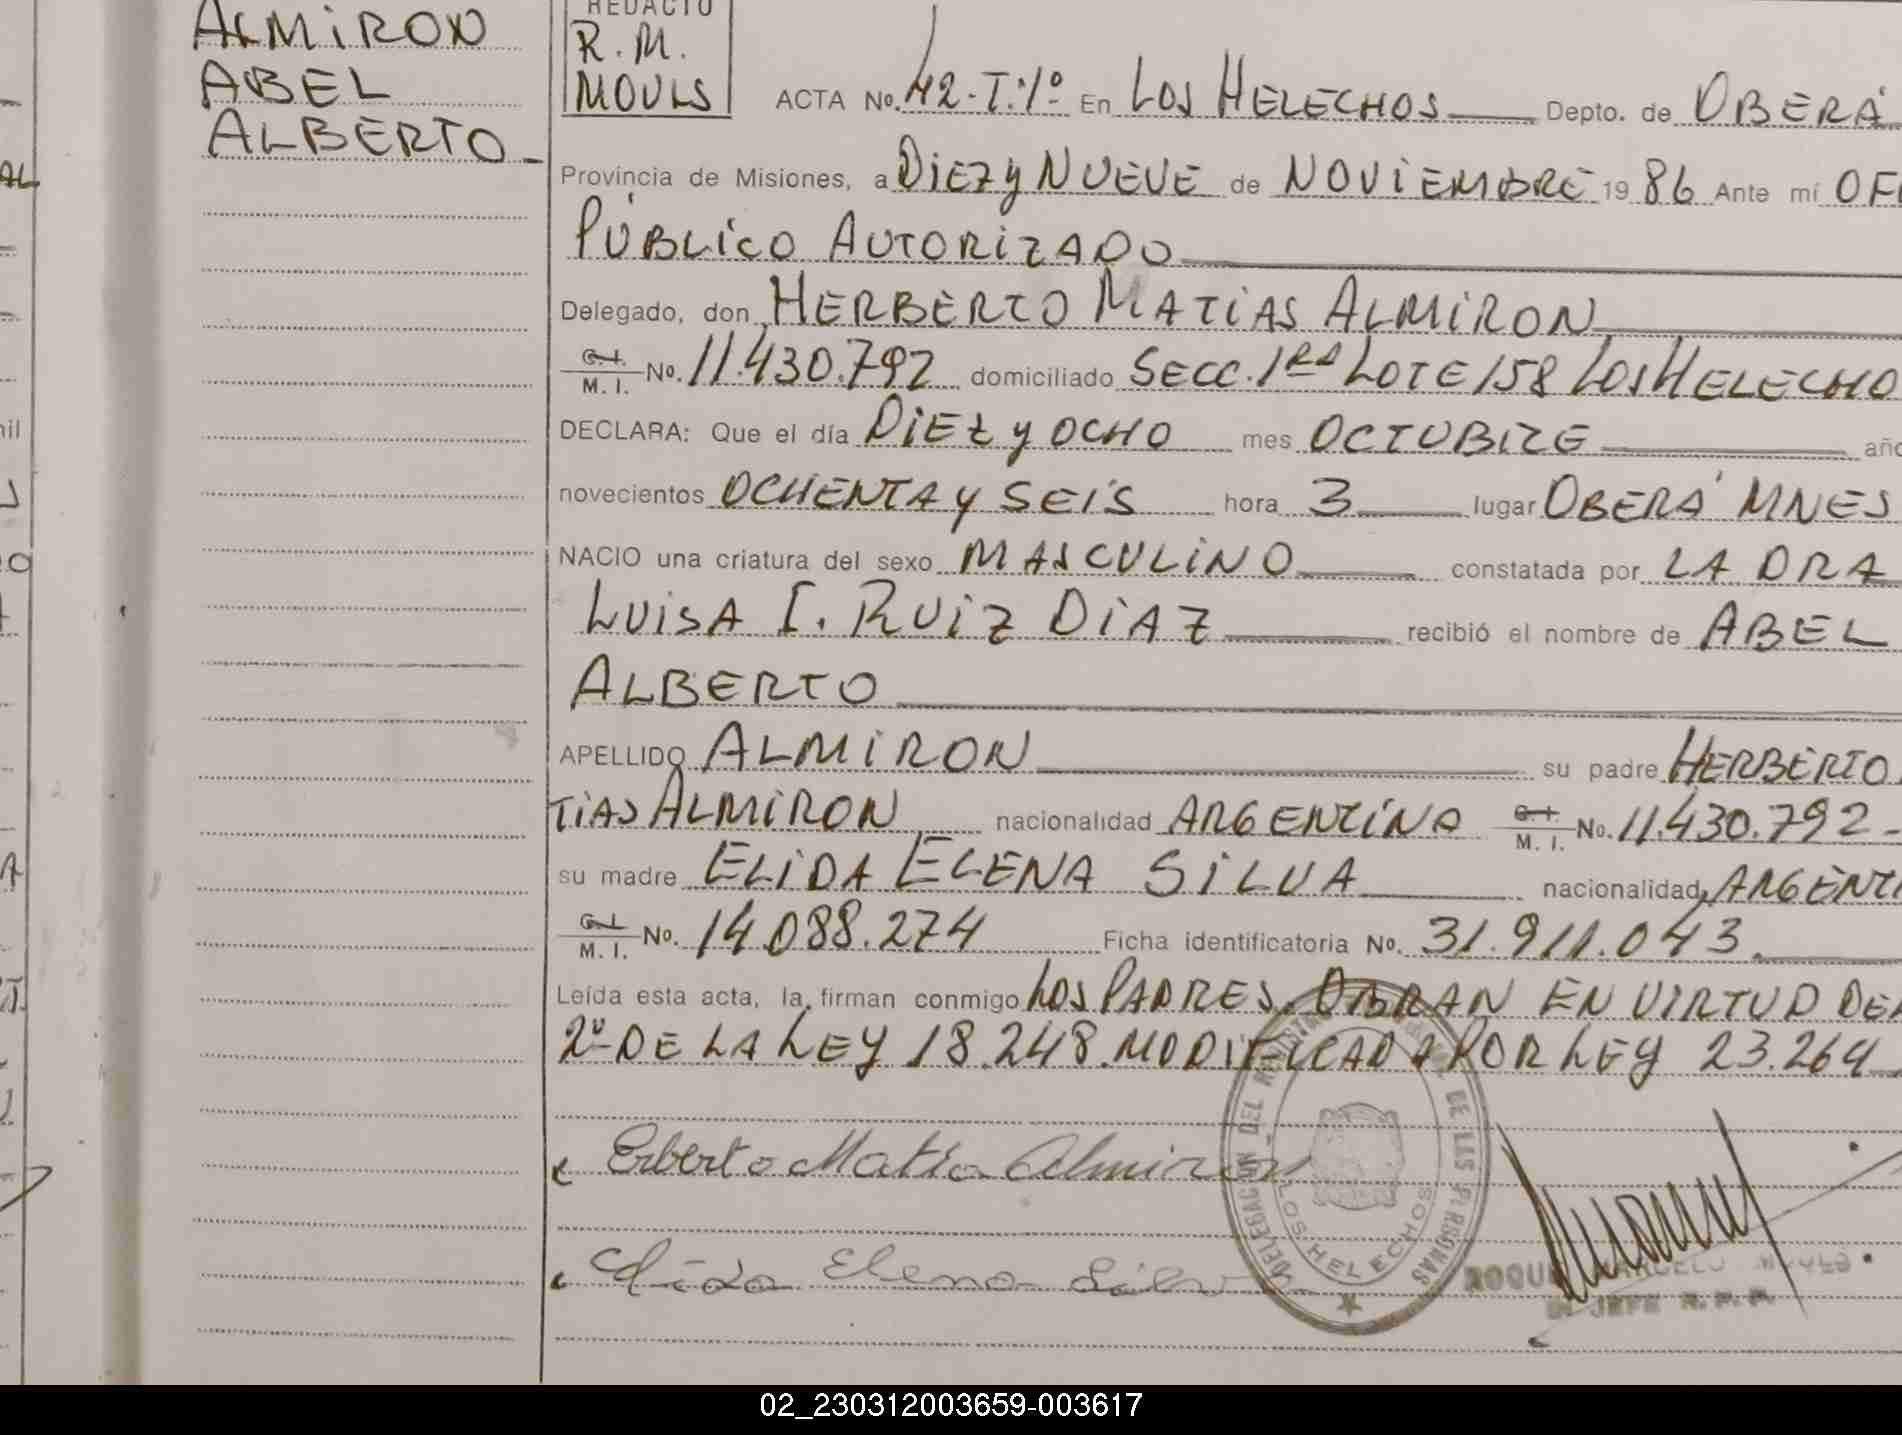 ALMIRON
ABEL
ALBERTO
REDACTO
R. M.
MOULS
ACTA No. 42-T:1º En LOS HELECHOS Depto. de OBERÁ
Provincia de Misiones, a DIEZ y NUEVE de NOVIEMBRE 1986 Ante mí OFI
PÚBLICO AUTORIZADO
Delegado, don HERBERTO MATIAS ALMIRON
C.I. M. I. No. 11.430.792 domiciliado SECC. 1RA LOTE 158 LOS HELECHO
DECLARA: Que el día DIEZ y OCHO mes OCTUBRE año
novecientos OCHENTA y SEIS hora 3 lugar OBERÁ MNES
NACIO una criatura del sexo MASCULINO constatada por LA DRA
LUISA I. RUIZ DIAZ recibió el nombre de ABEL
ALBERTO
APELLIDO ALMIRON su padre HERBERTO
TIAS ALMIRON nacionalidad ARGENTINA C.I. M. I. No. 11.430.792
su madre ELIDA ELENA SILVA nacionalidad ARGENTI
C.I. M. I. No. 14.088.274 Ficha identificatoria No. 31.911.043
Leída esta acta, la firman conmigo LOS PADRES. OBRAN EN VIRTUD DEL
2º DE LA LEY 18.248. MODIFICADA POR LEY 23.264
Erberto Matia Almiron
Elida Elena Silva
DELEGACION DEL REGISTRO DE LAS PERSONAS
LOS HELECHOS
ROQUE MARCELO
JEFE R. P. P.
02_230312003659-003617